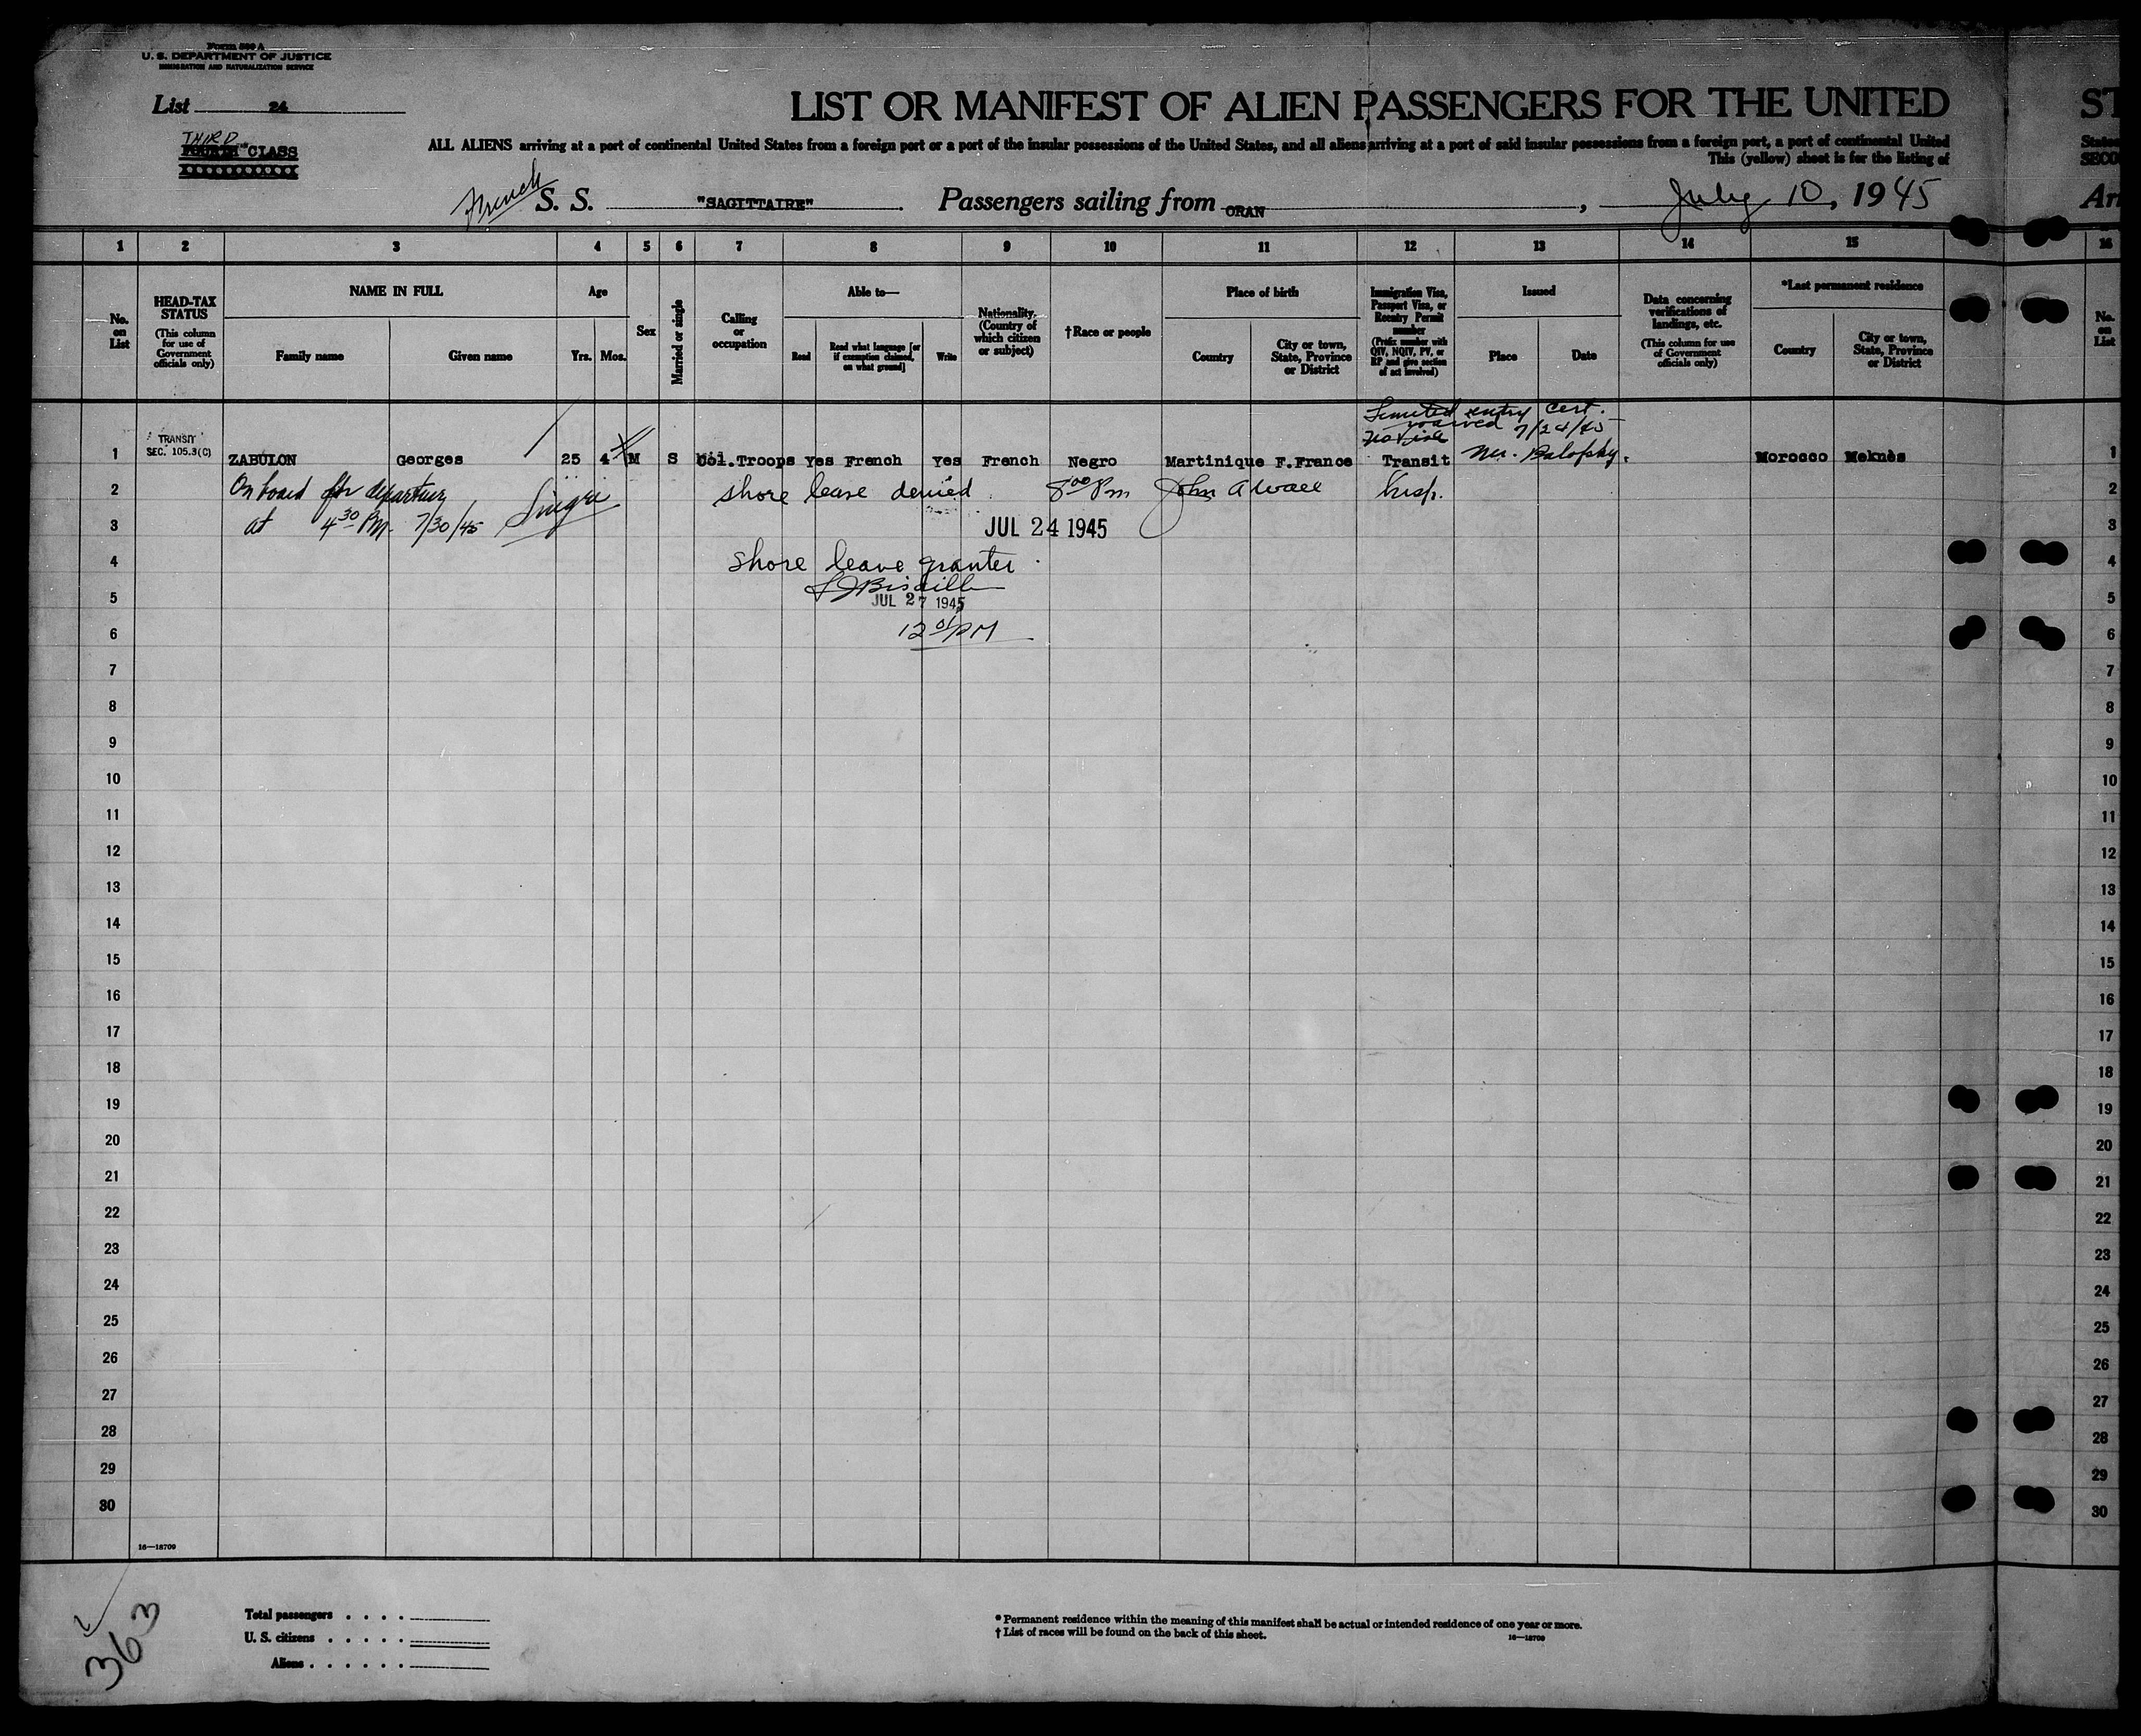 Form 500 A
U. S. DEPARTMENT OF JUSTICE
IMMIGRATION AND NATURALIZATION SERVICE
List 24
THIRD
FOURTH CLASS
LIST OR MANIFEST OF ALIEN PASSENGERS FOR THE UNITED ST
ALL ALIENS arriving at a port of continental United States from a foreign port or a port of the insular possessions of the United States, and all aliens arriving at a port of said insular possessions from a foreign port, a port of continental United States
This (yellow) sheet is for the listing of SECO
French S. S. "SAGITTAIRE" Passengers sailing from ORAN, July 10, 1945 Arr
1 2 3 4 5 6 7 8 9 10 11 12 13 14 15 16
No. on List
HEAD-TAX STATUS
(This column for use of Government officials only)
NAME IN FULL
Family name
Given name
Age
Yrs. Mos.
Sex
Married or single
Calling or occupation
Able to—
Read
Read what language [or if exemption claimed, on what ground]
Write
Nationality. (Country of which citizen or subject)
†Race or people
Place of birth
Country
City or town, State, Province or District
Immigration Visa, Passport Visa, or Reentry Permit number
(Prefix number with QIV, NQIV, PV, or RP and give section of act involved)
Issued
Place
Date
Data concerning verifications of landings, etc.
(This column for use of Government officials only)
*Last permanent residence
Country
City or town, State, Province or District
No. on List
Limited entry Cert.
waived 7/24/45
no visa
TRANSIT
SEC. 105.3(C)
1 ZABULON Georges 25 4 M S Col.Troops Yes French Yes French Negro Martinique F.France Transit Morocco Meknès 1
2 On board for departure shore leave denied 8 00 Pm John A Wall Insp. 2
3 at 4 30 Pm. 7/30/45 JUL 24 1945 3
4 Shore leave granted 4
5 JUL 27 1945 5
6 12 01 PM 6
7 7
8 8
9 9
10 10
11 11
12 12
13 13
14 14
15 15
16 16
17 17
18 18
19 19
20 20
21 21
22 22
23 23
24 24
25 25
26 26
27 27
28 28
29 29
30 30
16—18709
363
Total passengers . . . .
U. S. citizens . . . . .
Aliens . . . . . .
* Permanent residence within the meaning of this manifest shall be actual or intended residence of one year or more.
† List of races will be found on the back of this sheet.
16—18709